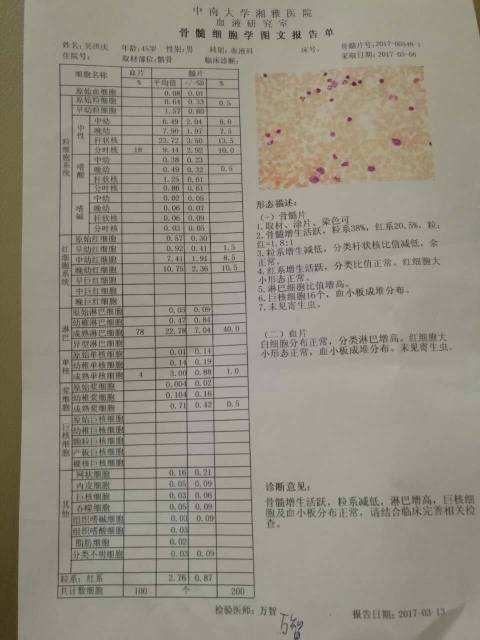 中南大学湘雅医院
血液研究室
骨髓细胞学图文报告单
姓名:吴洪庆 年龄:45岁 性别:男 科别:血液科 床号: 骨髓片号:2017-00546-1
住院号: 取材部位:髂骨 临床诊断: 采取日期:2017-03-06
细胞名称 血片 髓片
% 平均值 +/-SD %
原始血细胞 0.08 0.01
粒细胞系统
原始粒细胞 0.64 0.33 0.5
早幼粒细胞 1.57 0.60
中性
中幼 6.49 2.04 6.0
晚幼 7.90 1.97 7.5
杆状核 23.72 3.50 13.5
分叶核 18 9.44 2.92 10.0
嗜酸
中幼 0.38 0.23
晚幼 0.49 0.32 0.5
杆状核 1.25 0.61
分叶核 0.86 0.61
嗜碱
中幼 0.02 0.05
晚幼 0.06 0.07
杆状核 0.06 0.09
分叶核 0.03 0.05
红细胞系统
原始红细胞 0.57 0.30
早幼红细胞 0.92 0.41 1.5
中幼红细胞 7.41 1.91 8.5
晚幼红细胞 10.75 2.36 10.5
早巨红细胞
中巨红细胞
晚巨红细胞
淋巴
原始淋巴细胞 0.05 0.09
幼稚淋巴细胞 0.47 0.84
成熟淋巴细胞 78 22.78 7.04 40.0
异型淋巴细胞
单核
原始单核细胞 0.01 0.14
幼稚单核细胞 0.14 0.19
成熟单核细胞 4 3.00 0.88 1.0
浆细胞
原始浆细胞 0.004 0.02
幼稚浆细胞 0.104 0.16
成熟浆细胞 0.71 0.42 0.5
巨核细胞
原始巨核细胞
幼稚巨核细胞
颗粒巨核细胞
产板巨核细胞
裸核巨核细胞
其他
网状细胞 0.16 0.21
内皮细胞 0.05 0.09
巨核细胞 0.03 0.06
吞噬细胞 0.05 0.09
组织嗜碱细胞 0.03 0.09
组织嗜酸细胞 0.03
脂肪细胞 0.02
分类不明细胞 0.03 0.09
粒系:红系 2.76 0.87
共计数细胞 100 个 200
形态描述:
(一)髓片
1.取材、涂片、染色可
2.骨髓增生活跃,粒系38%,红系20.5%,粒:
红=1.8:1
3.粒系增生减低,分类杆状核比值减低,余
正常。
4.红系增生活跃,分类比值正常。红细胞大
小形态正常。
5.淋巴细胞比值增高。
6.巨核细胞16个,血小板成堆分布。
7.未见寄生虫。
(二)血片
白细胞分布正常,分类淋巴增高。红细胞大
小形态正常,血小板成堆分布。未见寄生虫。
诊断意见:
骨髓增生活跃,粒系减低,淋巴增高,巨核细
胞及血小板分布正常,请结合临床完善相关检
查。
检验医师:万智
万智
报告日期:2017-03-13